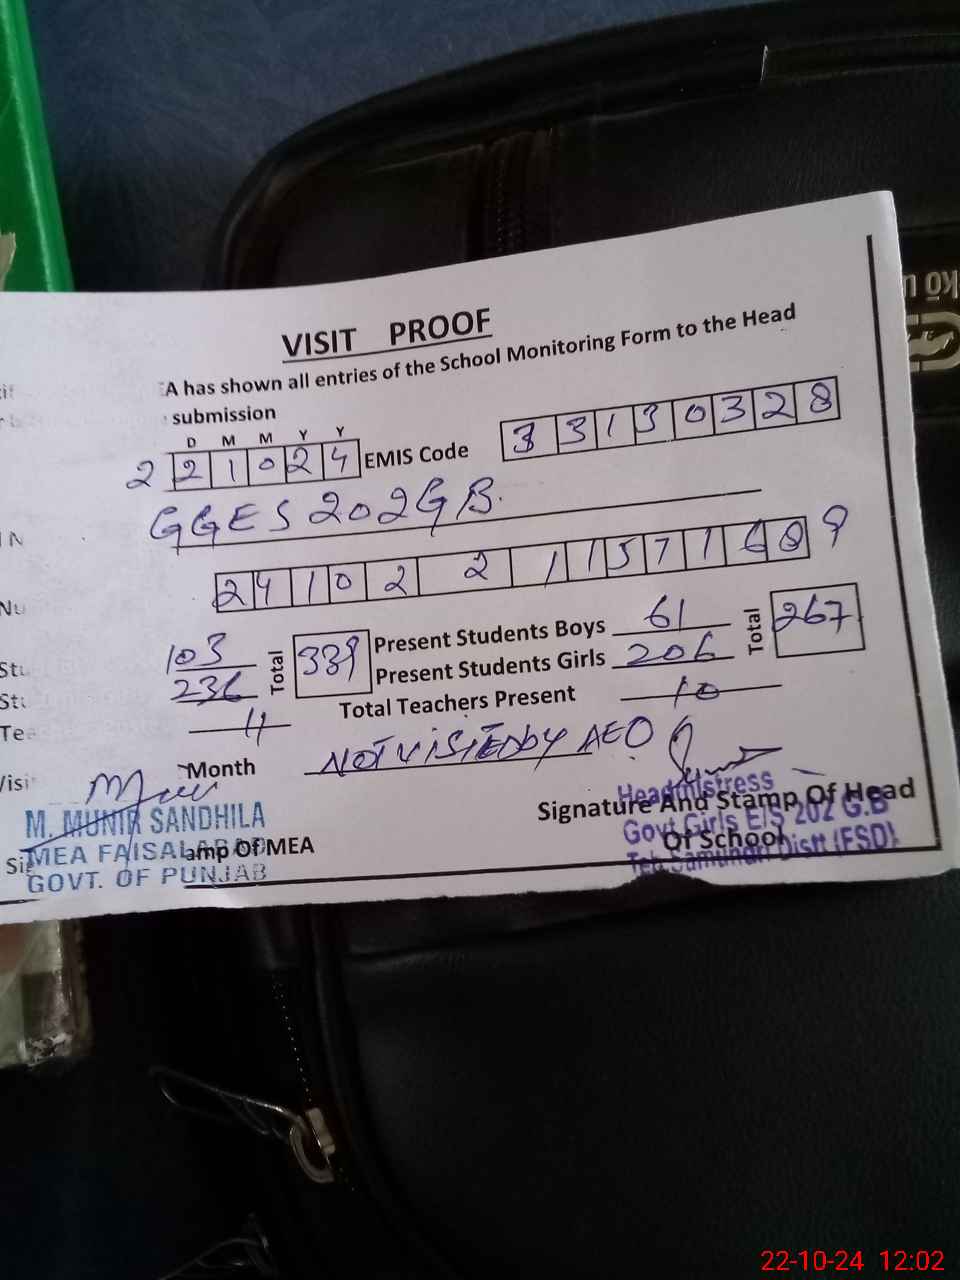 VISIT PROOF
A has shown all entries of the School Monitoring Form to the Head
submission
D M M Y Y
2 2 1 0 2 4 EMIS Code 3 3 1 3 0 3 2 8
GGES 202 GB.
Nu 2 4 1 0 2 2 1 1 5 7 1 6 0 9
103 Total 339 Present Students Boys 61 Total 267
236 Present Students Girls 206
11 Total Teachers Present 10
Month NOT VISTED by AEO
M. MUNIR SANDHILA
MEA FAISALABAD
GOVT. OF PUNJAB
amp Of MEA
Signature And Stamp Of Head
Of School
Headmistress
Govt Girls E/S 202 G.B
Teh Samundri Distt (FSD)
22-10-24 12:02